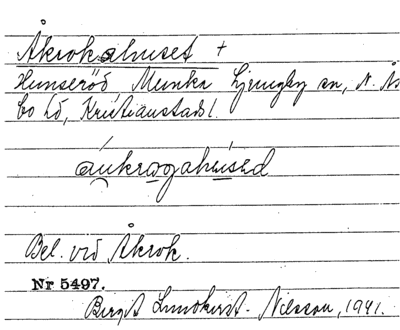 Åkrokahuset +
Hunseröd, Munka Ljungby sn, N. Ås
bo hd, Kristianstads l.
áukrogahúsed
Bel. vid Åkrok.
Nr 5497.
Birgit Lundkvist-Nilsson, 1941.